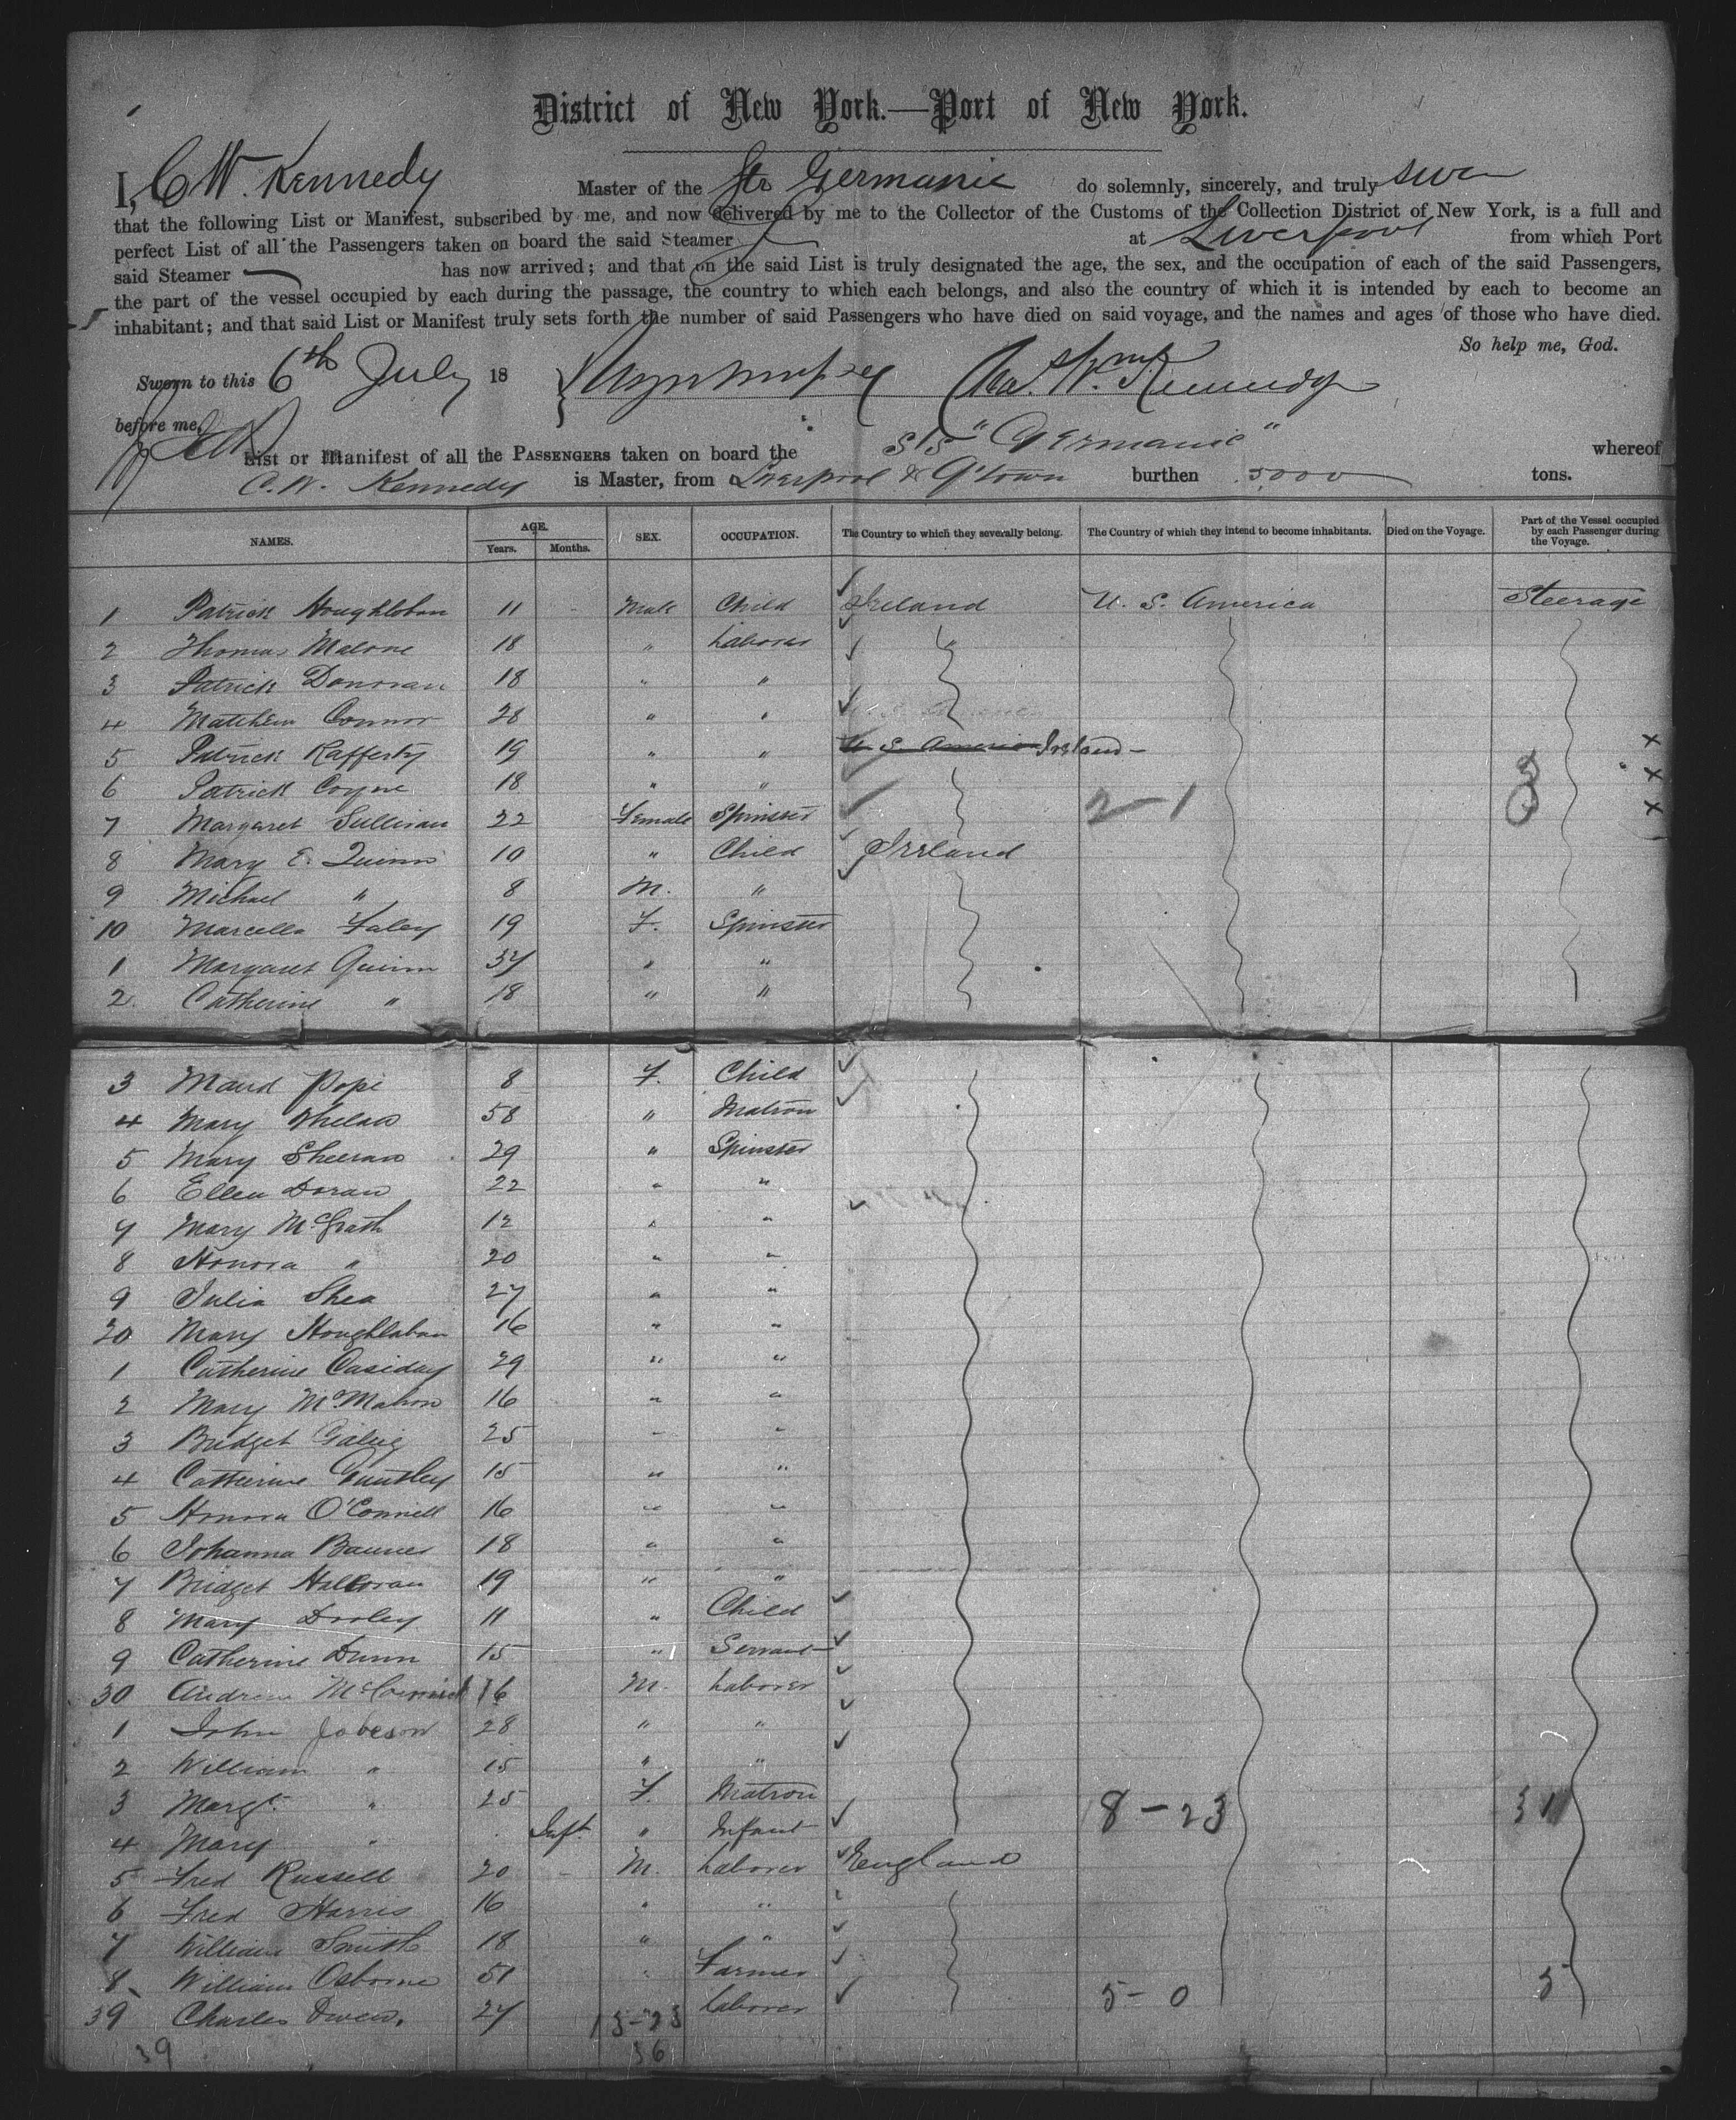 District of New York.—Port of New York.
I, C W. Kennedy Master of the Str Germanic do solemnly, sincerely, and truly swear
that the following List or Manifest, subscribed by me, and now delivered by me to the Collector of the Customs of the Collection District of New York, is a full and
perfect List of all the Passengers taken on board the said Steamer at Liverpool from which Port
said Steamer has now arrived; and that on the said List is truly designated the age, the sex, and the occupation of each of the said Passengers,
the part of the vessel occupied by each during the passage, the country to which each belongs, and also the country of which it is intended by each to become an
inhabitant; and that said List or Manifest truly sets forth the number of said Passengers who have died on said voyage, and the names and ages of those who have died.
So help me, God.
Sworn to this 6th July 18 Kennedy
before me,
List or Manifest of all the PASSENGERS taken on board the S/S "Germanic" whereof
C. W. Kennedy is Master, from Liverpool & Q'town burthen 5,000 tons.
NAMES. AGE. SEX. OCCUPATION. The Country to which they severally belong. The Country of which they intend to become inhabitants. Died on the Voyage. Part of the Vessel occupied by each Passenger during the Voyage.
Years. Months.
1 Patrick Houghlahan 11 - Male Child Ireland U. S. America Steerage
2 Thomas Malone 18 " Laborer "
3 Patrick Donovan 18 " "
4 Matthew Connor 28 " "
5 Patrick Rafferty 19 " " U S America Ireland - x
6 Patrick Coyne 18 " " x
7 Margaret Sullivan 22 Female Spinster 2-1 x
8 Mary E. Quinn 10 " Child Ireland
9 Michael " 8 M. "
10 Marcella Faley 19 F. Spinster
1 Margaret Quinn 37 " "
2 Catherine " 18 " "
3 Maud Pope 8 F. Child
4 Mary Whelan 58 " Matron
5 Mary Sheeran 29 " Spinster
6 Ellen Doran 22 " "
7 Mary McGrath 12 " "
8 Honora " 20 " "
9 Julia Shea 27 " "
20 Mary Houghlahan 16 " "
1 Catherine Casiday 29 " "
2 Mary McMahon 16 " "
3 Bridget 25 " "
4 Catherine 15 " "
5 Honora O'Connell 16 " "
6 Johanna 18 " "
7 Bridget Halloran 19 " "
8 Mary Dooley 11 " Child
9 Catherine Dunn 15 " Servant
30 Andrew McCormick 16 M. Laborer
1 John Jobeson 28 " "
2 William " 15 " "
3 Margt. " 25 F. Matron 8-23 31
4 Mary " Inft. " Infant
5 Fred Russell 20 - M. Laborer England
6 Fred Harris 16 " "
7 William Smith 18 " "
8 William Osborne 51 " Farmer 5-0 5
39 Charles Owens. 27 Laborer
39 36